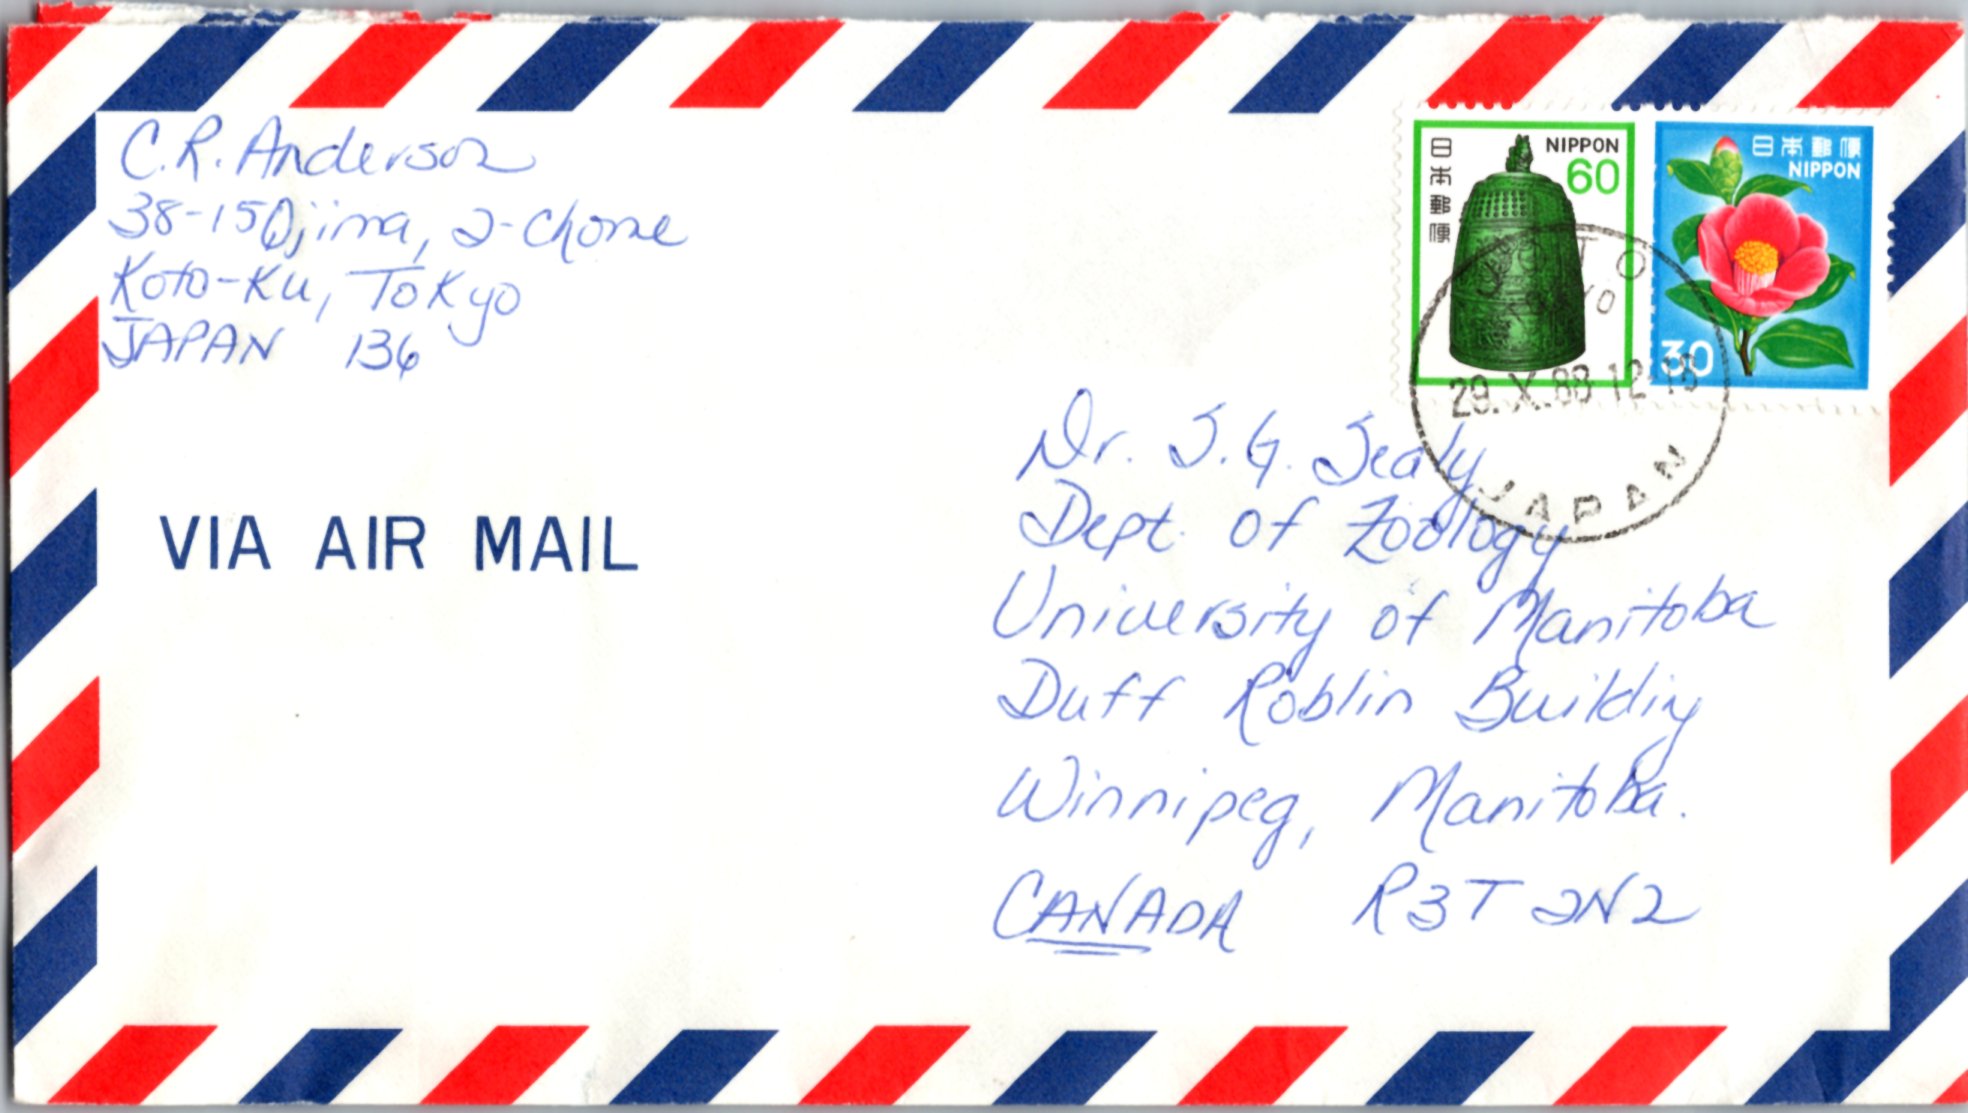 C.R. Anderson
38-15 Ojima, 2-Chome
Koto-Ku, Tokyo
JAPAN 136
VIA AIR MAIL
日本郵便
NIPPON
60
日本郵便
NIPPON
30
TOKYO
29.X.88 12-18
JAPAN
Dr. S.G. Sealy
Dept. of Zoology
University of Manitoba
Duff Roblin Building
Winnipeg, Manitoba.
CANADA R3T 2N2